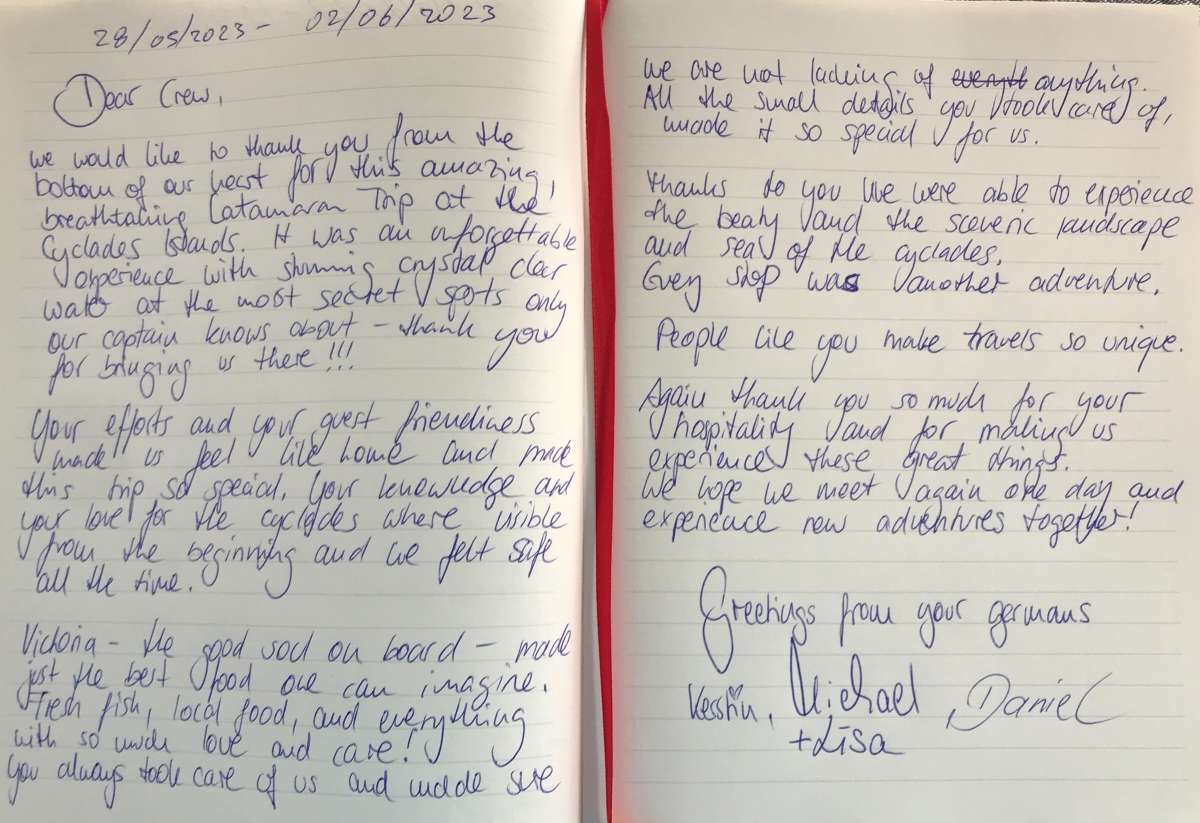 28/05/2023 - 02/06/2023
Dear Crew,
we would like to thank you from the
bottom of our heart for this amazing,
breathtaking Catamaran Trip at the
Cyclades Islands. It was an unforgettable
experience with stunning crystal clear
water at the most secret spots only
our captain knows about - thank you
for bringing us there!!!
Your efforts and your guest friendliness
made us feel like home and made
this trip so special. Your knowledge and
your love for the cyclades where visible
from the beginning and we felt safe
all the time.
Victoria - the good soul on board - made
just the best food one can imagine.
Fresh fish, local food, and everything
with so much love and care!
You always took care of us and made sure
we are not lacking of anything.
All the small details you took care of,
made it so special for us.
Thanks to you we were able to experience
the beaty and the sceneric landscape
and seas of the cyclades.
Every stop was another adventure.
People like you make travels so unique.
Again thank you so much for your
hospitality and for making us
experience these great things.
We hope we meet again one day and
experience new adventures together!
Greetings from your germans
Michael, Daniel
+ Lisa